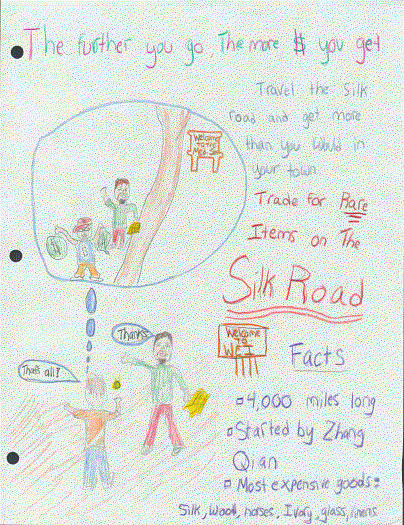 The further you go, The more $ you get
Travel the Silk
road and get more
than you would in
your town
Trade for Rare
Items on The
Silk Road
Welcome
To The
Thanks
That's all!
Welcome
To
Facts
4,000 miles long
Started by Zhang
Qian
Most expensive goods:
Silk, wool, horses, Ivory, glass, linens